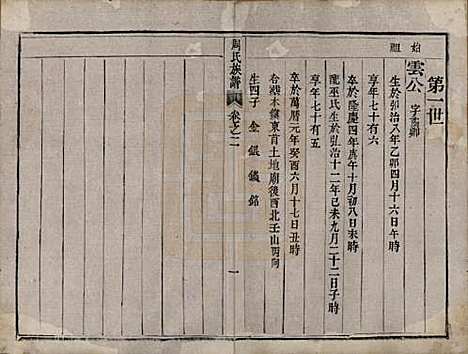 第一世
始祖
雲公 字
生於弘治八年乙卯四月十六日午時
享年七十有六
卒於隆慶四年庚午十月初八日未時
配巫氏生於弘治十二年己未九月二十二日子時
享年七十有五
卒於萬曆元年癸酉六月十七日丑時
合葬木黨東首土地廟後酉北壬山丙向
生四子 金 銀 鐵 銘
周氏族譜 卷之二 一